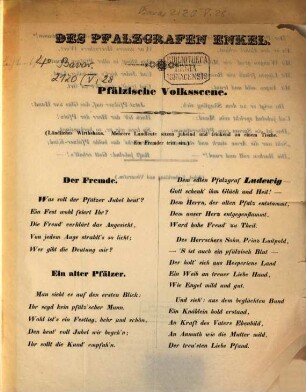 DES PFALZGRAFEN ENKEL.
4° Bavar.
2120 (V, 28
BIBLIOTHECA
REGIA
MONACENSIS.
Pfälzische Volksscene.
(Ländliches Wirthshaus. Mehrere Landleute sitzen jubelnd und trinkend an einem Tische.
Ein Fremder tritt ein.)
Der Fremde.
Was soll der Pfälzer Jubel heut'?
Ein Fest wohl feiert Ihr?
Die Freud' verklärt das Angesicht,
Von jedem Auge strahlt's so licht;
Wer gibt die Deutung mir?
Ein alter Pfälzer.
Man sieht es auf den ersten Blick:
Ihr seyd kein pfälz'scher Mann.
Wohl ist's ein Festtag, hehr und schön,
Den heut' voll Jubel wir begeh'n;
Ihr sollt die Kund' empfah'n.
Dem edlen Pfalzgraf Ludewig —
Gott schenk' ihm Glück und Heil! —
Dem Herrn, der alten Pfalz entstammt,
Dem unser Herz entgegenflammt,
Ward hohe Freud' zu Theil.
Des Herrschers Sohn, Prinz Luitpold,
— 'S ist auch ein pfälzisch Blut —
Der holt' sich aus Hesperiens Land
Ein Weib an treuer Liebe Hand,
Wie Engel mild und gut.
Und sich': aus dem beglückten Bund
Ein Knäblein hold erstand,
An Kraft des Vaters Ebenbild,
An Anmuth wie die Mutter mild,
Der treu'sten Liebe Pfand.